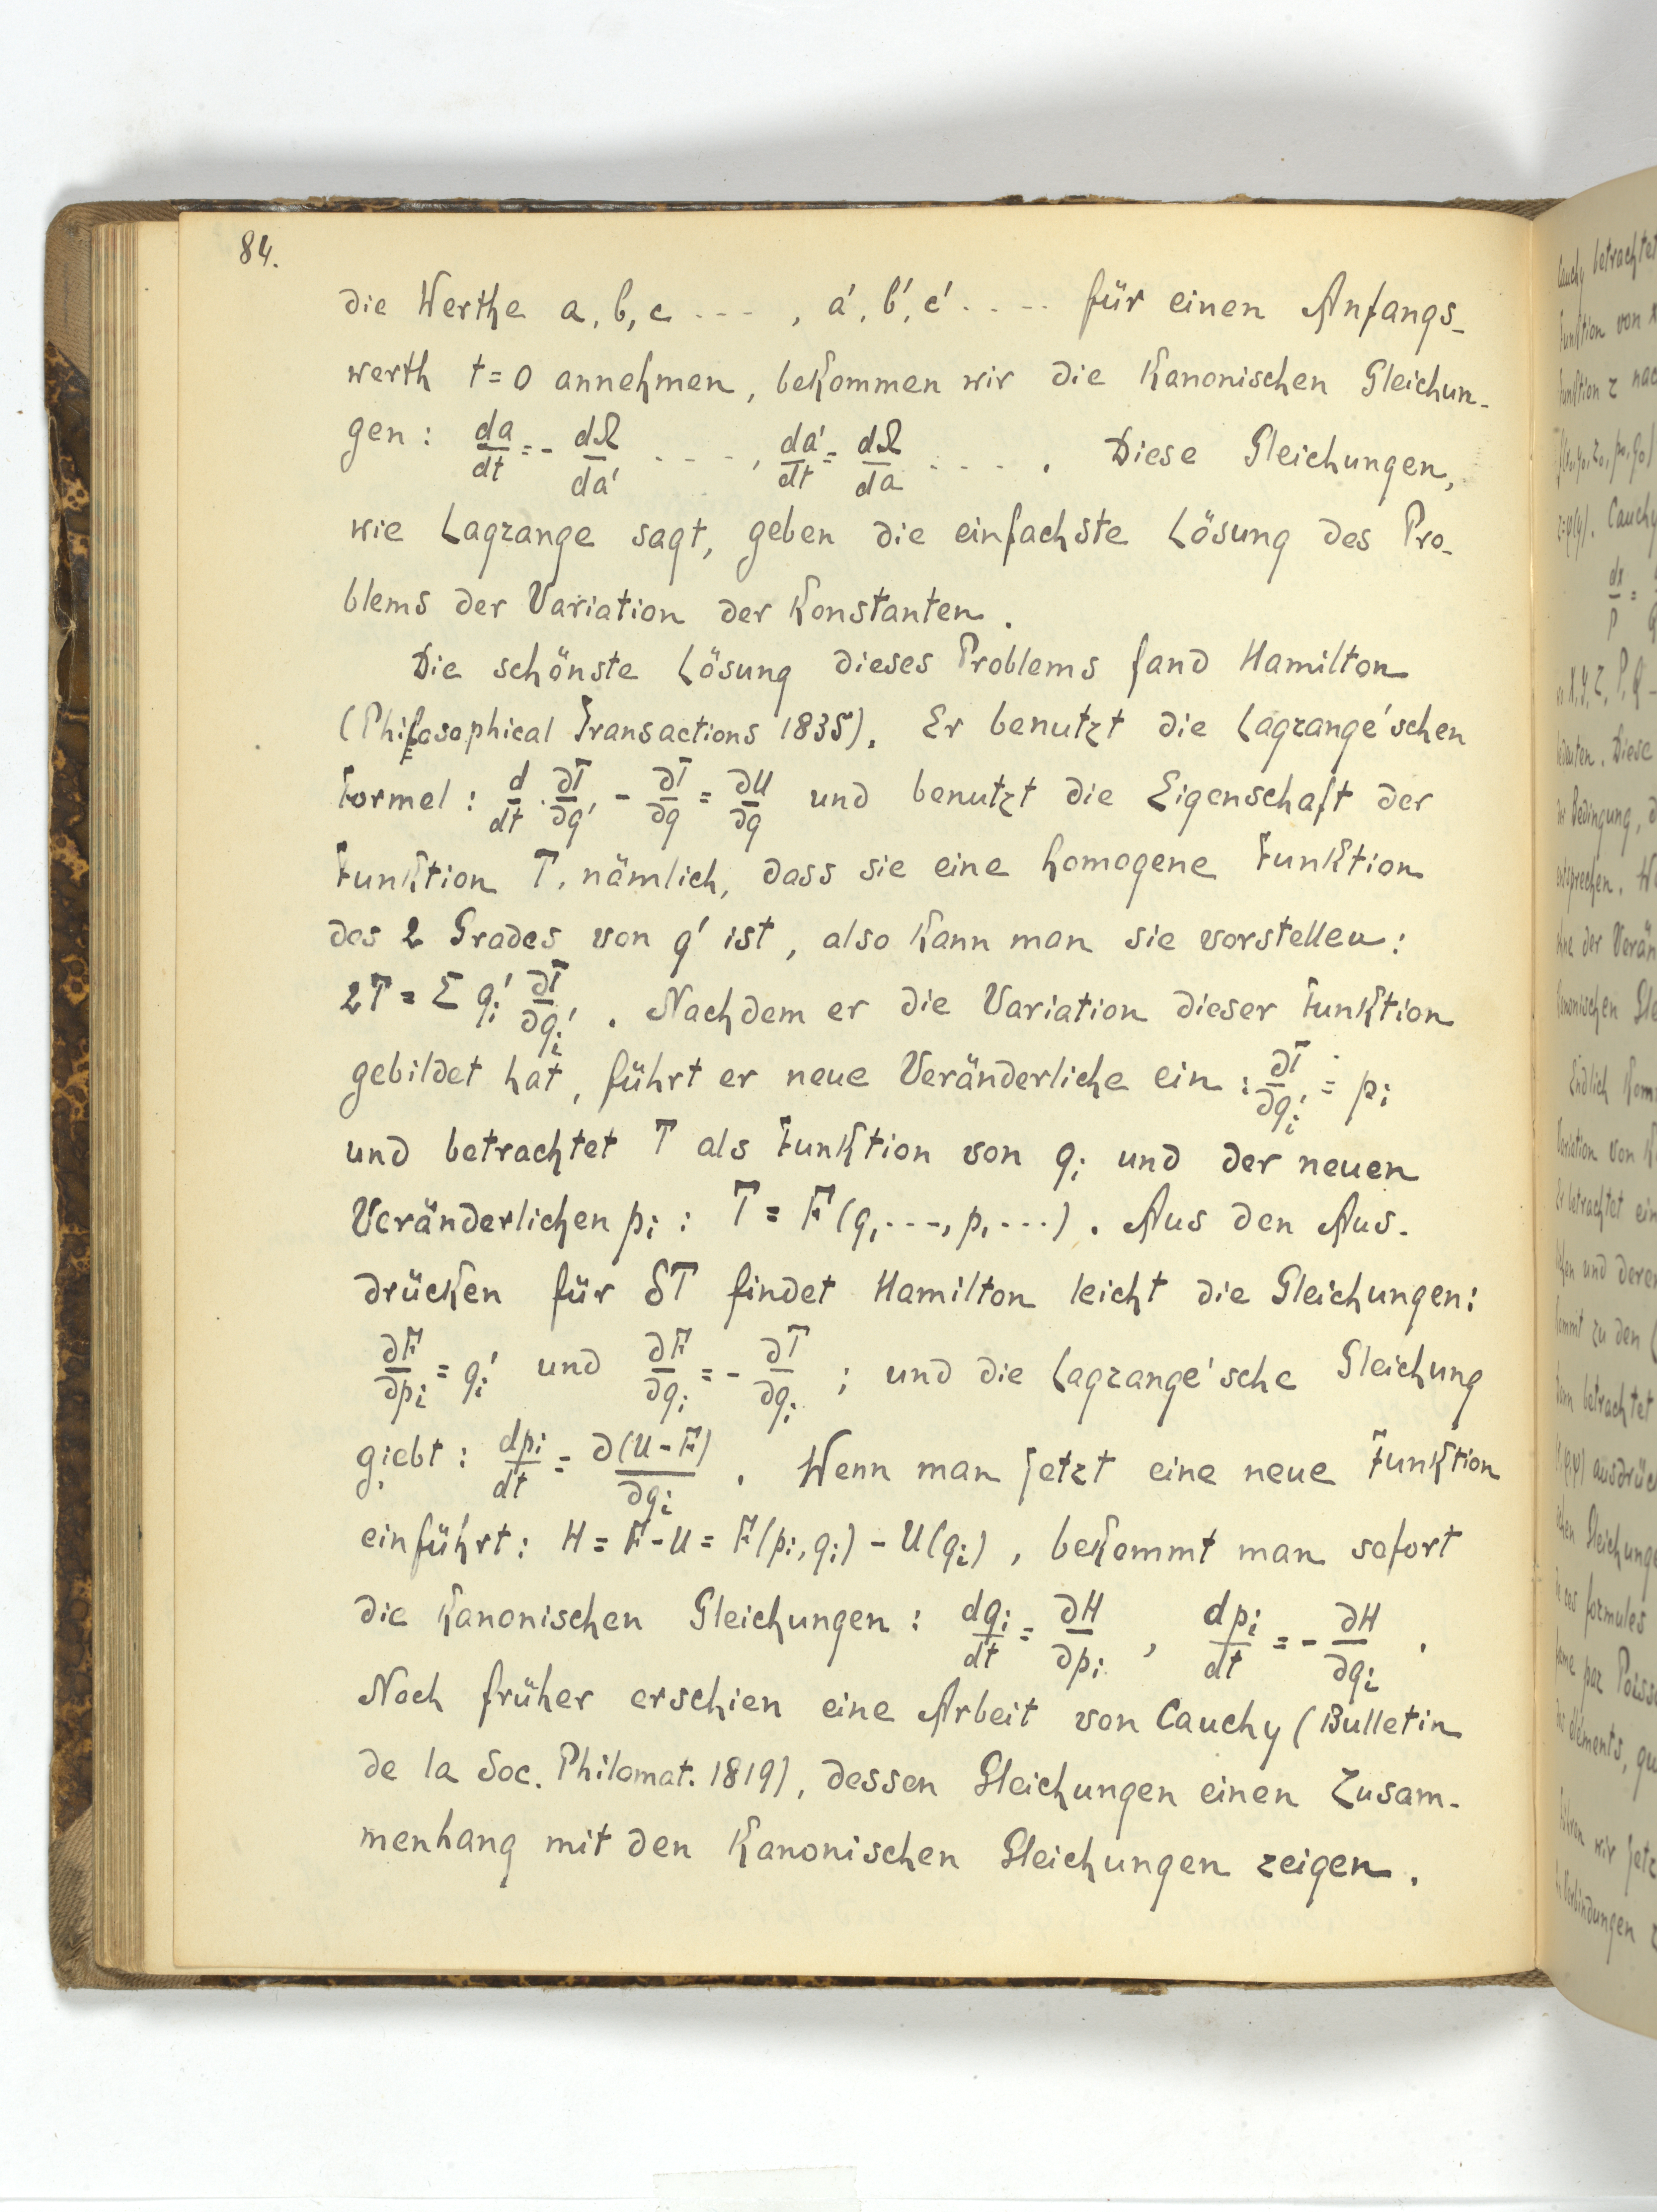 84.
die Werthe a, b, c - - - , a', b', c' . . - - für einen Anfangs-
werth t = 0 annehmen, bekommen wir die Kanonischen Gleichun-
gen : da/dt = - dΩ/da' - - - - , da'/dt = dΩ/da - - - - . Diese Gleichungen,
wie Lagrange sagt, geben die einfachste Lösung des Pro-
blems der Variation der Konstanten.
Die schönste Lösung dieses Problems fand Hamilton
(Philosophical Transactions 1835). Er benutzt die Lagrange'schen
Formel : d/dt · ∂T/∂q' - ∂T/∂q = ∂U/∂q und benutzt die Eigenschaft der
Funktion T, nämlich, dass sie eine homogene Funktion
des 2 Grades von q' ist, also kann man sie vorstellen:
2T = Σ qi' ∂T/∂qi' . Nachdem er die Variation dieser Funktion
gebildet hat, führt er neue Veränderliche ein : ∂T/∂qi' = pi
und betrachtet T als Funktion von qi und der neuen
Veränderlichen pi : T = F(q, - - -, p, - - -) . Aus den Aus-
drücken für δT findet Hamilton leicht die Gleichungen:
∂F/∂pi = qi' und ∂F/∂qi = - ∂T/∂qi ; und die Lagrange'sche Gleichung
giebt : dpi/dt = ∂(U - F)/∂qi . Wenn man jetzt eine neue Funktion
einführt : H = F - U = F(pi, qi) - U(qi) , bekommt man sofort
die Kanonischen Gleichungen : dqi/dt = ∂H/∂pi , dpi/dt = - ∂H/∂qi .
Noch früher erschien eine Arbeit von Cauchy (Bulletin
de la Soc. Philomat. 1819), dessen Gleichungen einen Zusam-
menhang mit den Kanonischen Gleichungen zeigen.
Cauchy betrachtet
Funktion von
Funktion z nac
Cauchy
Diese
Bedingung,
entsprechen.
der Verän
Kanonischen Gle
Endlich Kom
Variation von K
Er betrachtet ein
und deren
kommt zu den
betrachtet
ausdrück
Gleichunge
ces formules
par Poiss
éléments, qu
wir jetz
Verbindungen